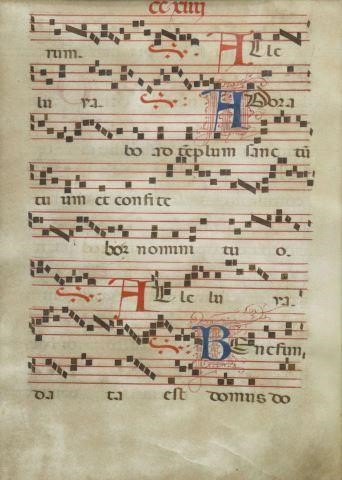 cc xiiij
rum. Alle
lu ya. Adora
bo ad tēplum sanc tū
tu um et confite
bor nomini tu o.
Alle lu ya.
Benefun
da ta est domus do